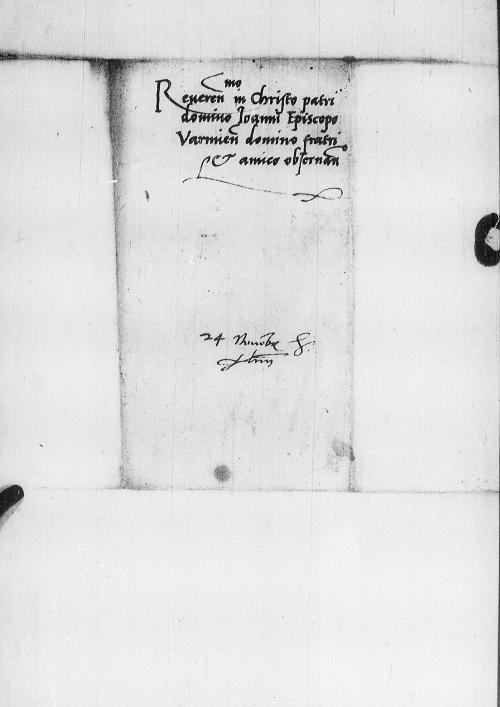 Reveren^mo in Christo patri
domino Ioanni Episcopo
Varmien domino fratri
et amico observan
24 Novembr